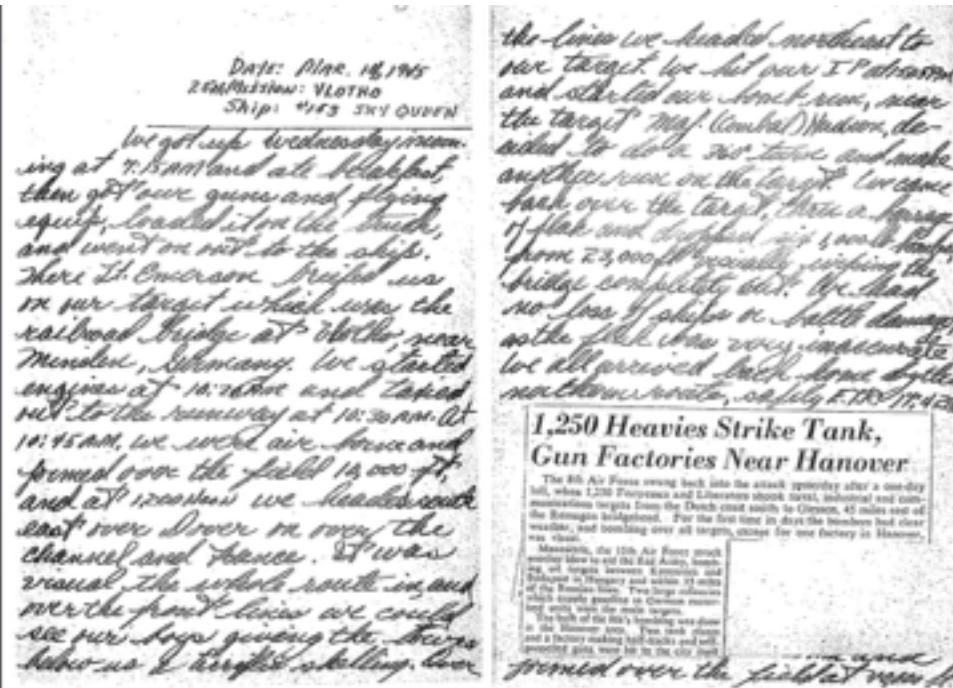 DATE: MAR. 14, 1945
MISSION: VLOTHO
SHIP: #153 SKY QUEEN
We got up Wednesday morn-
ing at 7:15 AM and ate breakfast,
then got our guns and flying
equip, loaded it on the truck,
and went on out to the ship.
There Lt. Emerson briefed us
on our target which was the
railroad bridge at Vlotho, near
Minden, Germany. We started
engines at 10:20 AM and taxied
out to the runway at 10:30 AM. At
10:45 AM. we were air borne and
formed over the field 10,000 ft,
and at 12:00 Noon we headed south
east over Dover on over the
channel and France. It was
visual the whole route in, and
over the front lines we could
see our boys giving the
below us a terrific shelling. Over
the lines we headed northeast to
our target. We hit our I P at
and started our bomb run, near
the target Maj. (Combat) Hudson, de-
cided to do a 360° turn and make
another run on the target. We came
back over the target, thru a barrage
of flak and dropped six 1,000 lb bombs,
from 23,000 ft visually, wiping the
bridge completely out. We had
no loss of ships or battle damage,
as the flak was very inaccurate
We all arrived back home by the
northern route, safely
1,250 Heavies Strike Tank,
Gun Factories Near Hanover
The 8th Air Force swung back into the attack yesterday after a one-day
lull, when 1,250 Fortresses and Liberators shook naval, industrial and com-
munications targets from the Dutch coast south to Giessen, 45 miles east of
the Remagen bridgehead. For the first time in days the bombers had clear
weather, and bombing over all targets, except for one factory in Hanover,
was visual.
Meanwhile, the 15th Air Force struck
another blow to aid the Red Army, bomb-
ing oil targets between
Budapest in Hungary and within 35 miles
of the Russian lines. Two large refineries
which supply gasoline to German
units were the main targets.
The bulk of the 8th's bombing was done
in the Hanover area. Two tank
and a factory making half-tracks and self-
propelled guns were hit in the city itself
and
formed over the field at